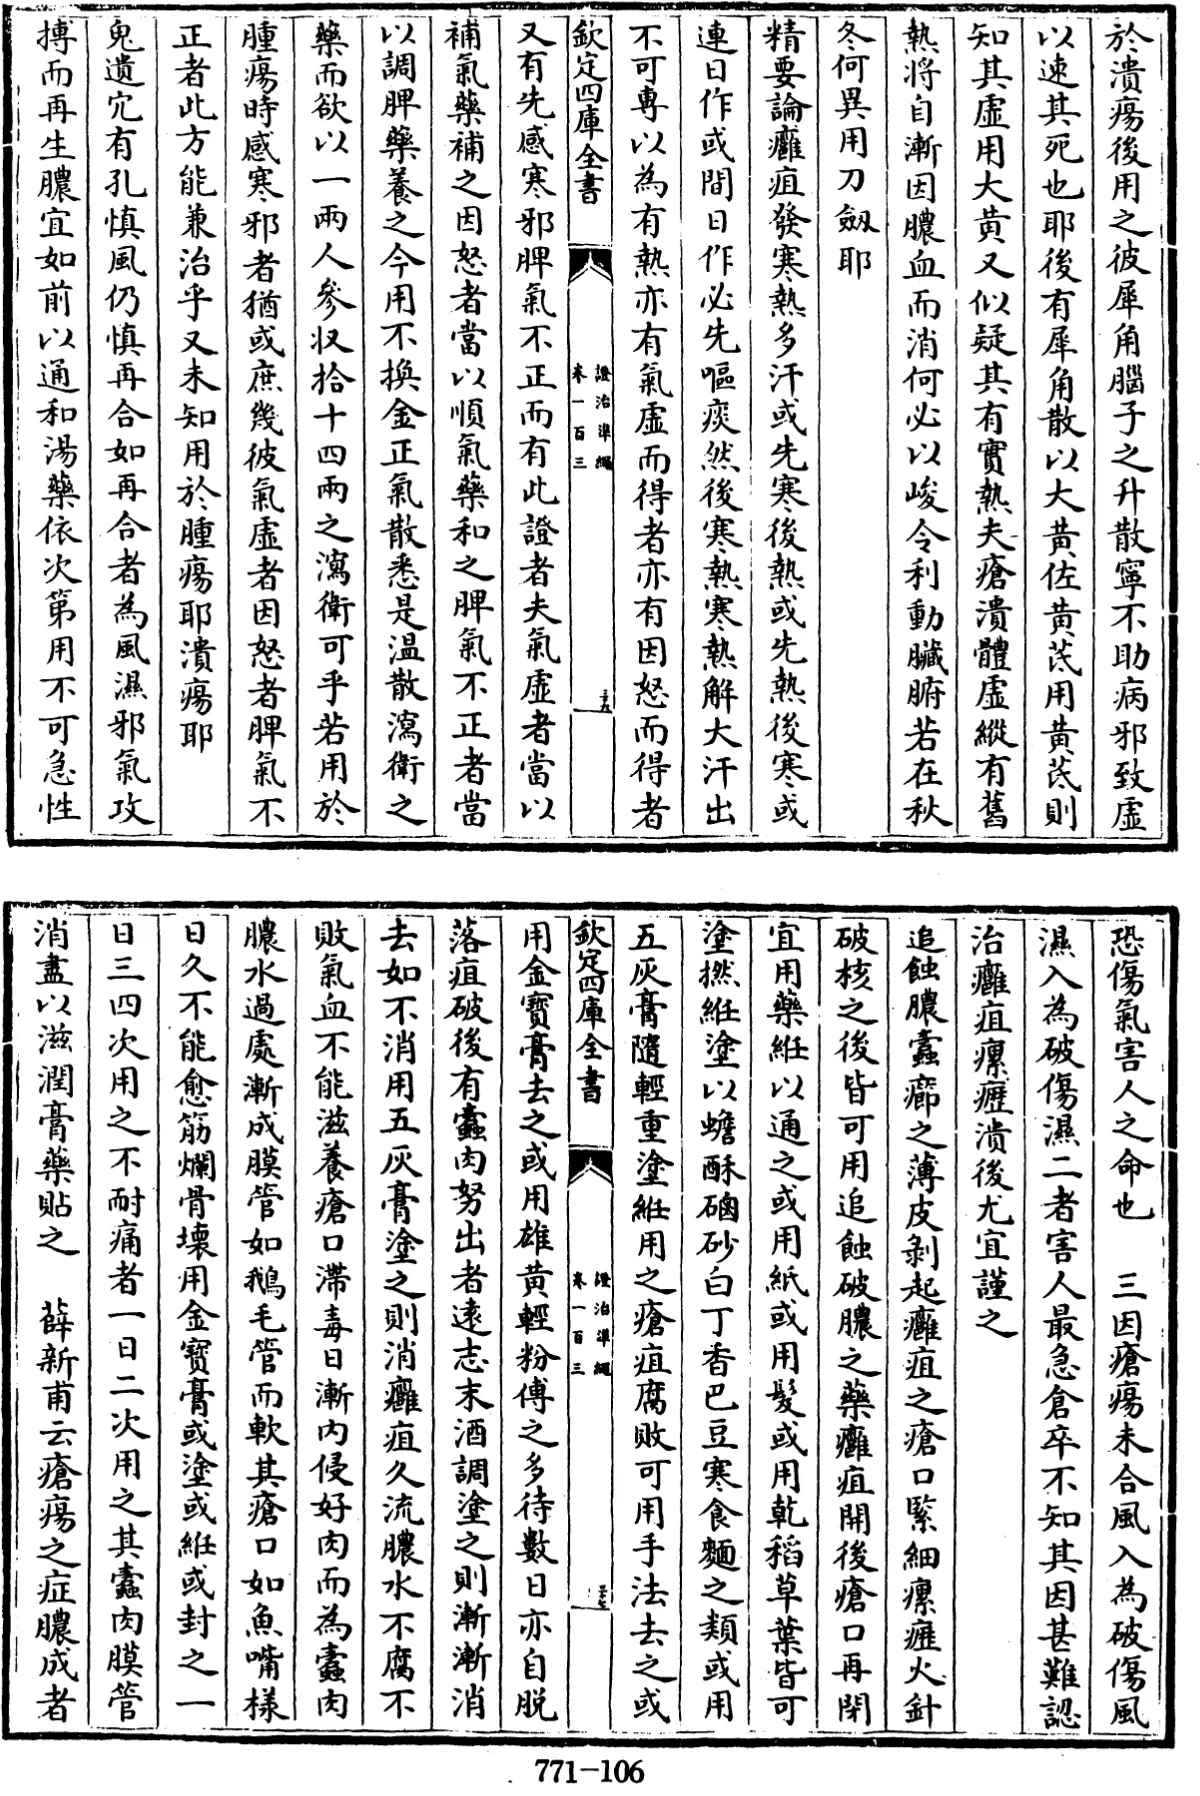 於潰瘍後用之彼犀角腦子之升散寧不助病邪致虛
以速其死也耶後有犀角散以大黄佐黄芪用黄芪則
知其虛用大黄又似疑其有實熱夫瘡潰體虛縱有舊
熱將自漸因膿血而消何必以峻令利動臟腑若在秋
冬何異用刀劔耶
精要論癰疽發寒熱多汗或先寒後熱或先熱後寒或
連日作或間日作必先嘔痰然後寒熱寒熱解大汗出
不可專以為有熱亦有氣虛而得者亦有因怒而得者
欽定四庫全書
證治準繩
卷一百三
又有先感寒邪脾氣不正而有此證者夫氣虛者當以
補氣藥補之因怒者當以順氣藥和之脾氣不正者當
以調脾藥養之今用不換金正氣散悉是温散瀉衛之
藥而欲以一兩人參收拾十四兩之瀉衛可乎若用於
腫瘍時感寒邪者猶或庶幾彼氣虛者因怒者脾氣不
正者此方能兼治乎又未知用於腫瘍耶潰瘍耶
鬼遺宂有孔慎風仍慎再合如再合者為風濕邪氣攻
搏而再生膿宜如前以通和湯藥依次第用不可急性
恐傷氣害人之命也 三因瘡瘍未合風入為破傷風
濕入為破傷濕二者害人最急倉卒不知其因甚難認
治癰疽瘰癧潰後尤宜謹之
追蝕膿蠧癤之薄皮剥起癰疽之瘡口緊細瘰癧火針
破核之後皆可用追蝕破膿之藥癰疽開後瘡口再閉
宜用藥絍以通之或用紙或用髮或用乾稻草葉皆可
塗撚絍塗以蟾酥硇砂白丁香巴豆寒食麵之類或用
五灰膏隨輕重塗絍用之瘡疽腐敗可用手法去之或
欽定四庫全書
證治準繩
卷一百三
用金寶膏去之或用雄黄輕粉傅之多待數日亦自脱
落疽破後有蠧肉努出者逺志末酒調塗之則漸漸消
去如不消用五灰膏塗之則消癰疽久流膿水不腐不
敗氣血不能滋養瘡口滯毒日漸内侵好肉而為蠧肉
膿水過處漸成膜管如鵝毛管而軟其瘡口如魚嘴樣
日久不能愈筋爛骨壊用金寶膏或塗或絍或封之一
日三四次用之不耐痛者一日二次用之其蠧肉膜管
消盡以滋潤膏藥貼之 薛新甫云瘡瘍之症膿成者
771-106